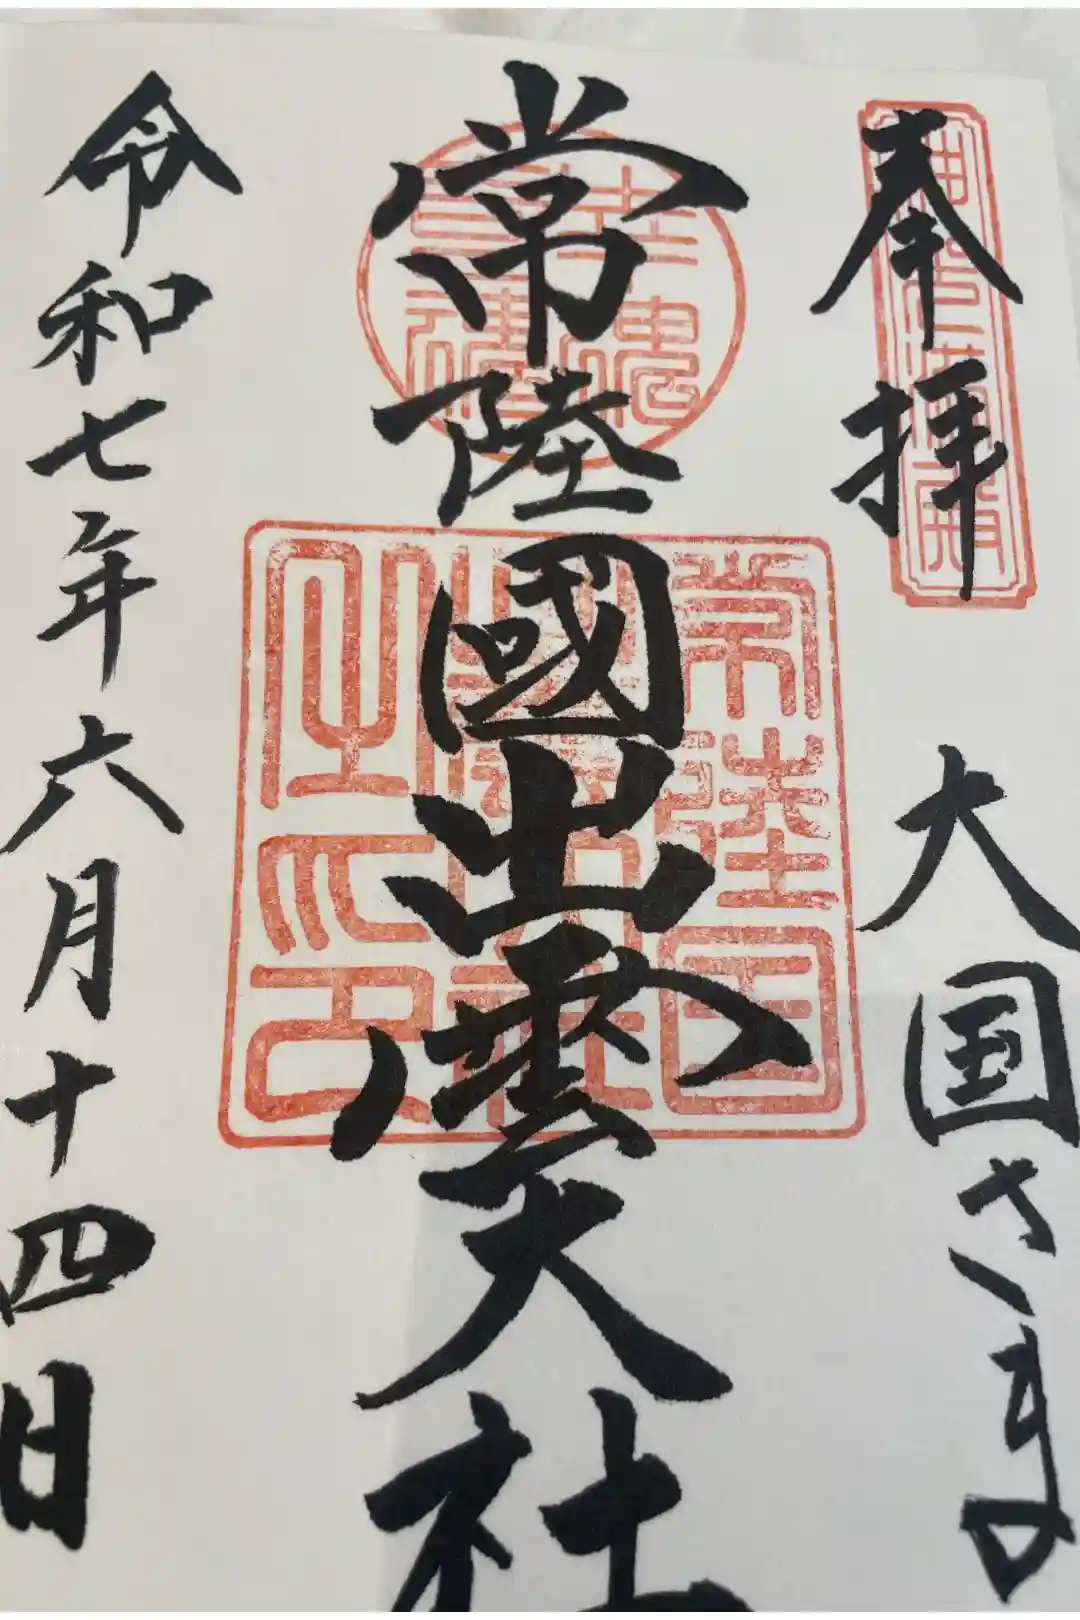 奉拝
大国さま
常陸國出雲大社
常陸国出雲大社之印
令和七年六月十四日